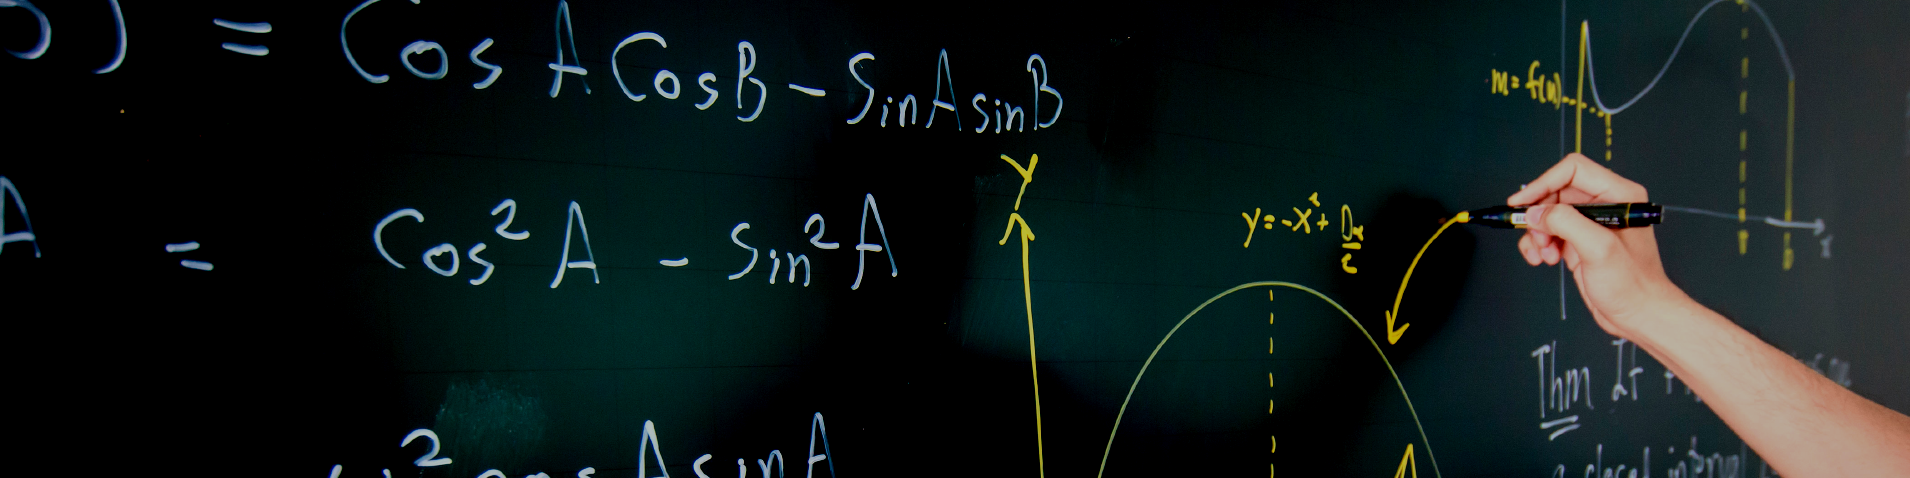 ) = Cos A Cos B - Sin A sin B
A = Cos² A - Sin² A
² cos A sin A
Y
y = -x² +
m = f(u)
x
Thm If
a closed interval